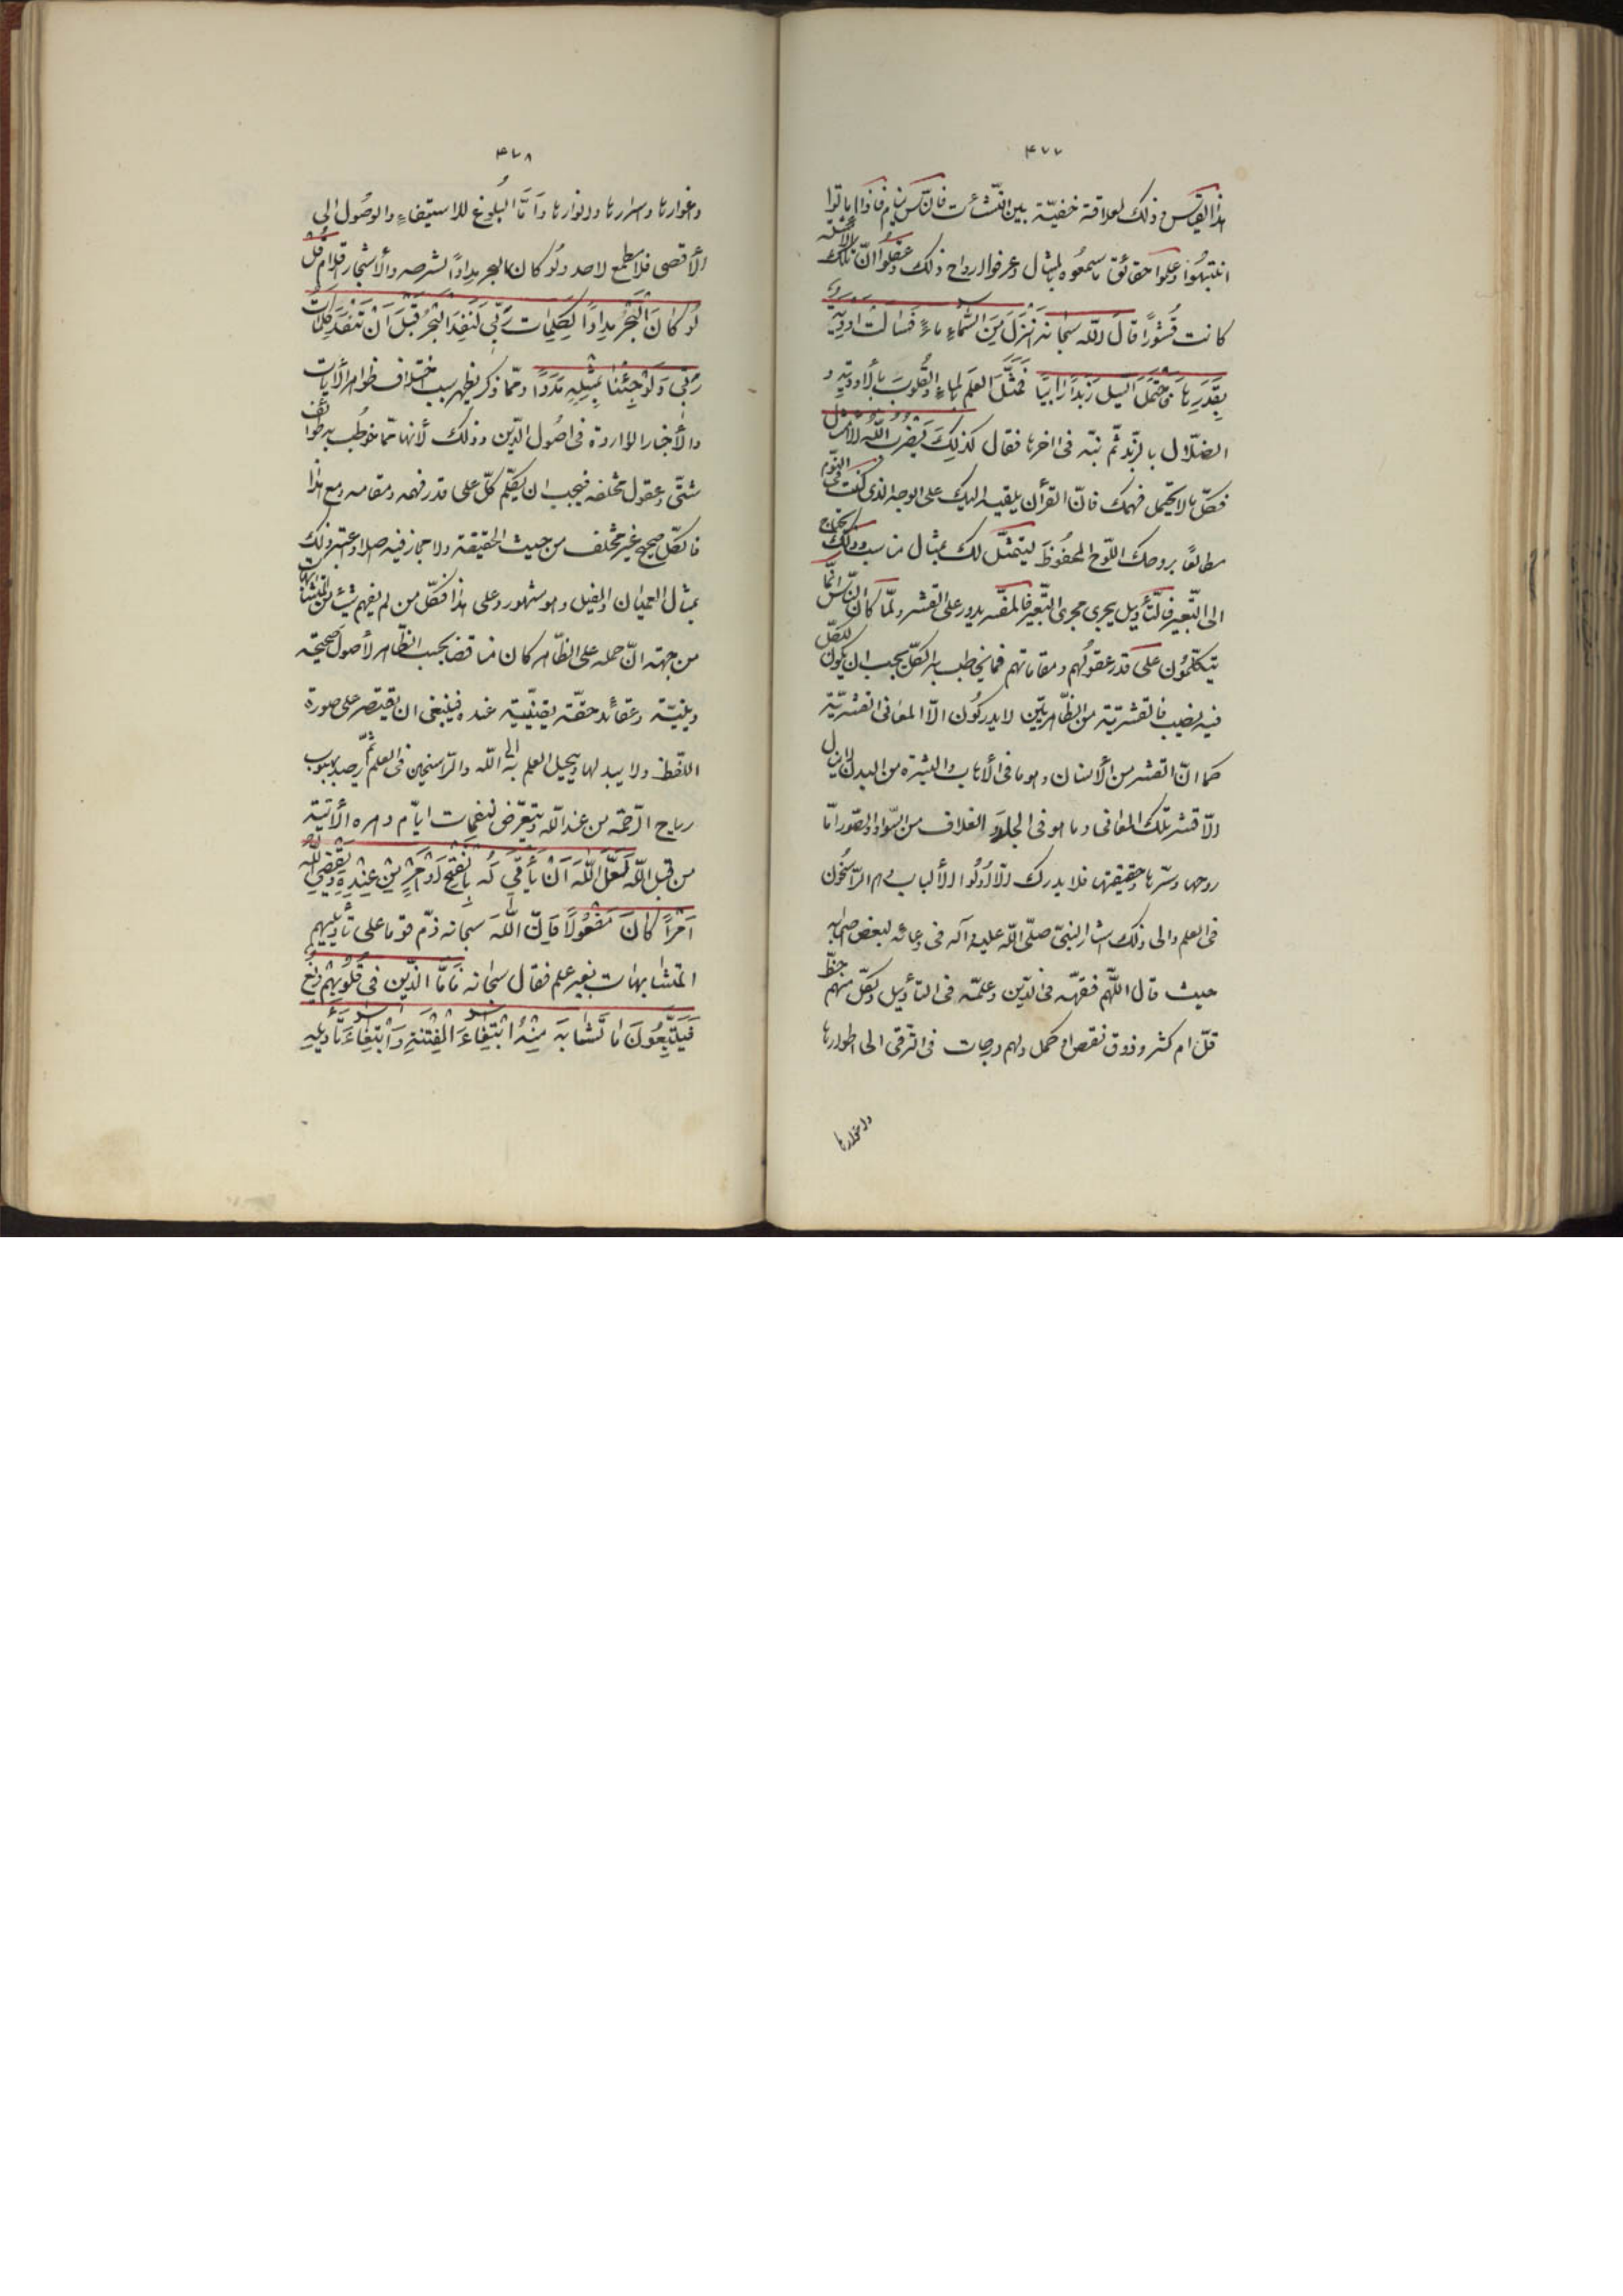 ٤٧٧
هذا القياس وذلك لعلاقة خفيّة بين النّشئات فانّ النّاس نيام فاذا ماتوا
انتبهوا وعلموا حقائق ما سمعوه بالمثال وعرفوا ارواح ذلك وعقلوا انّ تلك الأمثلة
كانت قشورًا قال اللّه سبحانه انزل من السّماء ماءً فسالت اودية
بقدرها فاحتمل السيل زبدًا رابيًا فمثّل العلم بالماء والقلوب بالأودية و
الضلال بالزّبد ثمّ نبّه في اخرها فقال كذلك يضرب اللّه الأمثال
فكلّ ما لا يحتمل فهمك فانّ القرآن يلقيه اليك على الوجه الذي كنت في النّوم
مطالعًا بروحك اللّوح المحفوظ ليتمثّل لك بمثال مناسب وذلك يحتاج
الى التّعبير فالتّأويل يجري مجرى التّعبير فالمفسّر يدور على القشر ولمّا كان النّاس انّما
يتكلّمون على قدر عقولهم ومقاماتهم فما يخاطب به الكلّ يجب ان يكون للكلّ
فيه نصيب فالقشريّة من الظّاهريّين لا يدركون الّا المعاني القشريّة
كما انّ القشر من الأنسان وهو ما في الأهاب والبشرة من البدن لا ينال
الّا قشر تلك المعاني وما هو في الجلد والغلاف من السّواد والصّور امّا
روحها وسرّها وحقيقتها فلا يدرك الّا اولوا الألباب وهم الرّاسخون
في العلم والى ذلك اشار النبيّ صلّى اللّه عليه وآله في دعائه لبعض اصحابه
حيث قال اللّهم فقّهه في الدّين وعلّمه في التأويل ولكلّ منهم حظّ
قلّ ام كثر وذوق نقص او كمل ولهم درجات في التّرقّي الى اطوارها
واغوارها
٤٧٨
واغوارها واسرارها وانوارها وامّا البلوغ للاستيفاء والوصول الى
الأقصى فلا مطمع لاحد ولو كان البحر مدادًا لشرحه والأشجار اقلام قل
لو كان البحر مدادًا لكلمات ربّي لنفد البحر قبل ان تنفد كلمات
ربّي ولو جئنا بمثله مددًا وممّا ذكر يظهر سبب اختلاف ظواهر الآيات
والأخبار الواردة في اصول الدّين وذلك لأنها ممّا خوطب به طوائف
شتّى وعقول مختلفة فيجب ان يكلّم كلّ على قدر فهمه ومقامه ومع هذا
فالكلّ صحيح غير مختلف من حيث الحقيقة ولا مجاز فيه اصلا واعتبر ذلك
بمثال العميان والفيل وهو مشهور وعلى هذا فكلّ من لم يفهم شيئا من المتشابهات
من جهة انّ حمله على الظّاهر كان مناقضا بحسب الظّاهر لأصول صحيحة
دينيّة وعقائد حقّة يقينيّة عنده فينبغي ان يقتصر على صورة
اللّفظ ولا يبدلها ويحيل العلم به الى اللّه والرّاسخين في العلم ثمّ يرصد لهبوب
رياح الرّحمة من عند اللّه ويتعرّض لنفحات ايّام دهره الآتية
من قبل اللّه لعلّ اللّه ان يأتي له بالفتح او امر من عنده ويقضي اللّه
امرًا كان مفعولًا فانّ اللّه سبحانه ذمّ قوما على تأويلهم
المتشابهات بغير علم فقال سبحانه فامّا الذين في قلوبهم زيغ
فيتّبعون ما تشابه منه ابتغاء الفتنة وابتغاء تأويله